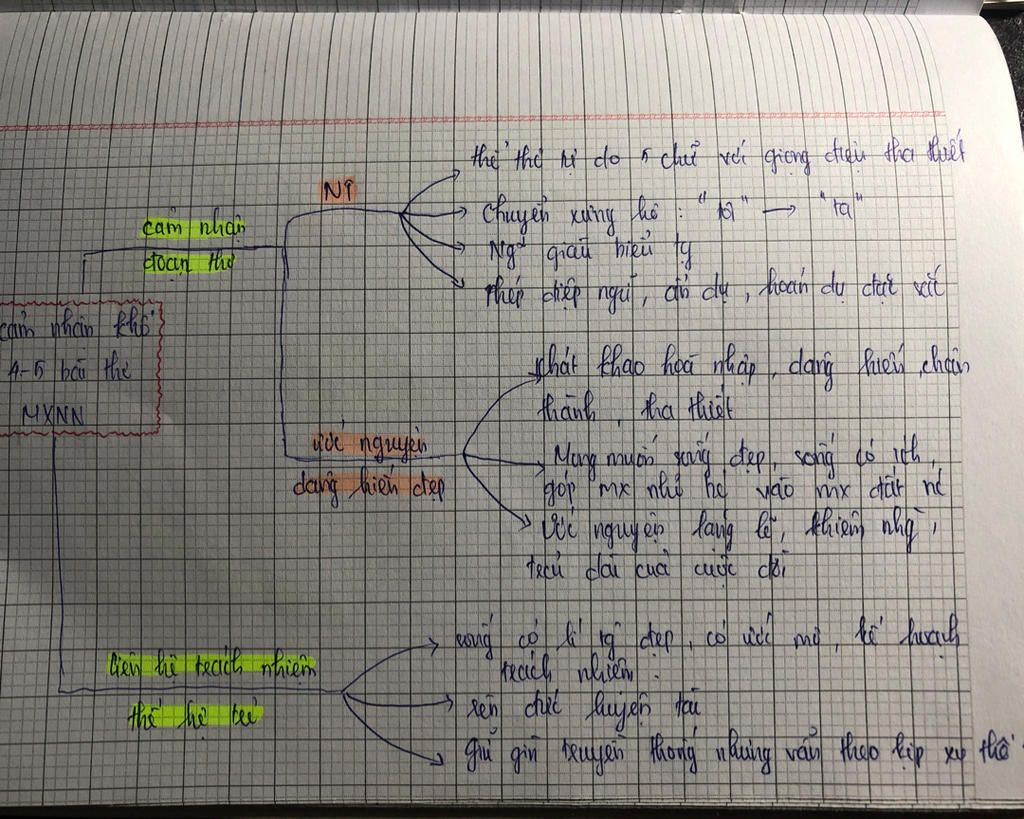 thể thơ tự do 5 chữ với giọng điệu tha thiết
NT
chuyển xưng hô : "tôi" → "ta"
cảm nhận
đoạn thơ
Ng² giàu biểu
phép điệp ngữ, ẩn dụ, hoán dụ đặt
cảm nhận khổ
4-5 bài thơ
MXNN
khát khao hoà nhập, dâng hiến, chân
thành, tha thiết
ước nguyện
dâng hiến đẹp
Mong muốn sống đẹp, sống có ích,
góp mx nhỏ bé vào mx đất nc
Ước nguyện lặng lẽ, khiêm nhg,
của cuộc đời
liên hệ trách nhiệm
thế hệ trẻ
sống có lí tg đẹp, có ước mơ, kế hoạch
trách nhiệm.
rèn đức luyện tài
giữ gìn truyền thống nhưng vẫn theo kịp xu thế